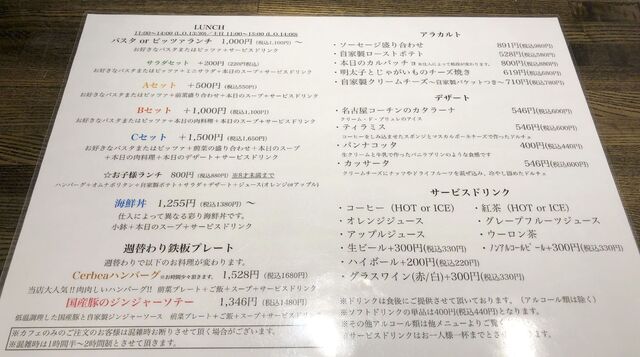 LUNCH
11:00～14:00 (L.O.13:30)／土日 11:00～15:00 (L.O.14:00)
パスタ or ピッツァランチ 1,000円 (税込1,100円) ～
お好きなパスタまたはピッツァ＋サービスドリンク
サラダセット ＋200円 (220円税込)
お好きなパスタまたはピッツァ＋ミニサラダ＋本日のスープ＋サービスドリンク
Aセット ＋500円 (税込550円)
お好きなパスタまたはピッツァ＋前菜盛り合わせ＋本日のスープ＋サービスドリンク
Bセット ＋1,000円 (税込1,100円)
お好きなパスタまたはピッツァ＋本日の肉料理＋本日のスープ＋サービスドリンク
Cセット ＋1,500円 (税込1,650円)
お好きなパスタまたはピッツァ＋前菜の盛り合わせ＋本日のスープ
＋本日の肉料理＋本日のデザート＋サービスドリンク
☆お子様ランチ 800円 (税込880円) ※8才未満まで
ハンバーグ＋オムナポリタン＋自家製ポテト＋サラダ＋デザート＋ジュース(オレンジorアップル)
海鮮丼 1,255円 (税込1380円) ～
仕入によって異なる彩り海鮮丼です。
小鉢＋本日のスープ＋サービスドリンク
週替わり鉄板プレート
週替わりで以下のお料理が変わります。
Cerbeaハンバーグ ※お時間少々頂きます。 1,528円 (税込1680円)
当店大人気!!肉肉しいハンバーグ!! 前菜プレート＋ご飯＋スープ＋サービスドリンク
国産豚のジンジャーソテー 1,346円 (税込1480円)
低温調理した国産豚と自家製ジンジャーソース 前菜プレート＋ご飯＋スープ＋サービスドリンク
※カフェのみのご注文のお客様は混雑時お断りさせて頂く場合がございます。
※混雑時は1時間半～2時間制とさせて頂きます。
アラカルト
・ソーセージ盛り合わせ 891円(税込980円)
・自家製ローストポテト 528円(税込580円)
・本日のカルパッチョ ※仕入によって値段が変わります。 800円(税込880円)
・明太子とじゃがいものチーズ焼き 619円(税込680円)
・自家製クリームチーズ～自家製バケットつき～ 710円(税込780円)
デザート
・名古屋コーチンのカタラーナ 546円(税込600円)
クリーム・ド・ブリュレのアイス
・ティラミス 546円(税込600円)
コーヒーをしみ込ませたスポンジとマスカルポーネチーズで作ったドルチェ
・パンナコッタ 400円(税込440円)
生クリームと牛乳で作ったバニラプリンのような食感です
・カッサータ 546円(税込600円)
クリームチーズにナッツやドライフルーツを混ぜ込み、冷やし固めたドルチェ
サービスドリンク
・コーヒー (HOT or ICE) ・紅茶 (HOT or ICE)
・オレンジジュース ・グレープフルーツジュース
・アップルジュース ・ウーロン茶
・生ビール＋300円(税込330円) ・ノンアルコールビール＋300円(税込330円)
・ハイボール＋200円(税込220円)
・グラスワイン(赤/白)＋300円(税込330円)
※ドリンクは食後にご提供させて頂いております。(アルコール類は除く)
※ソフトドリンクの単品は400円(税込440円)となります。
※その他アルコール類は他メニューよりご覧
※サービスドリンクはお一人様一杯までとさせて頂